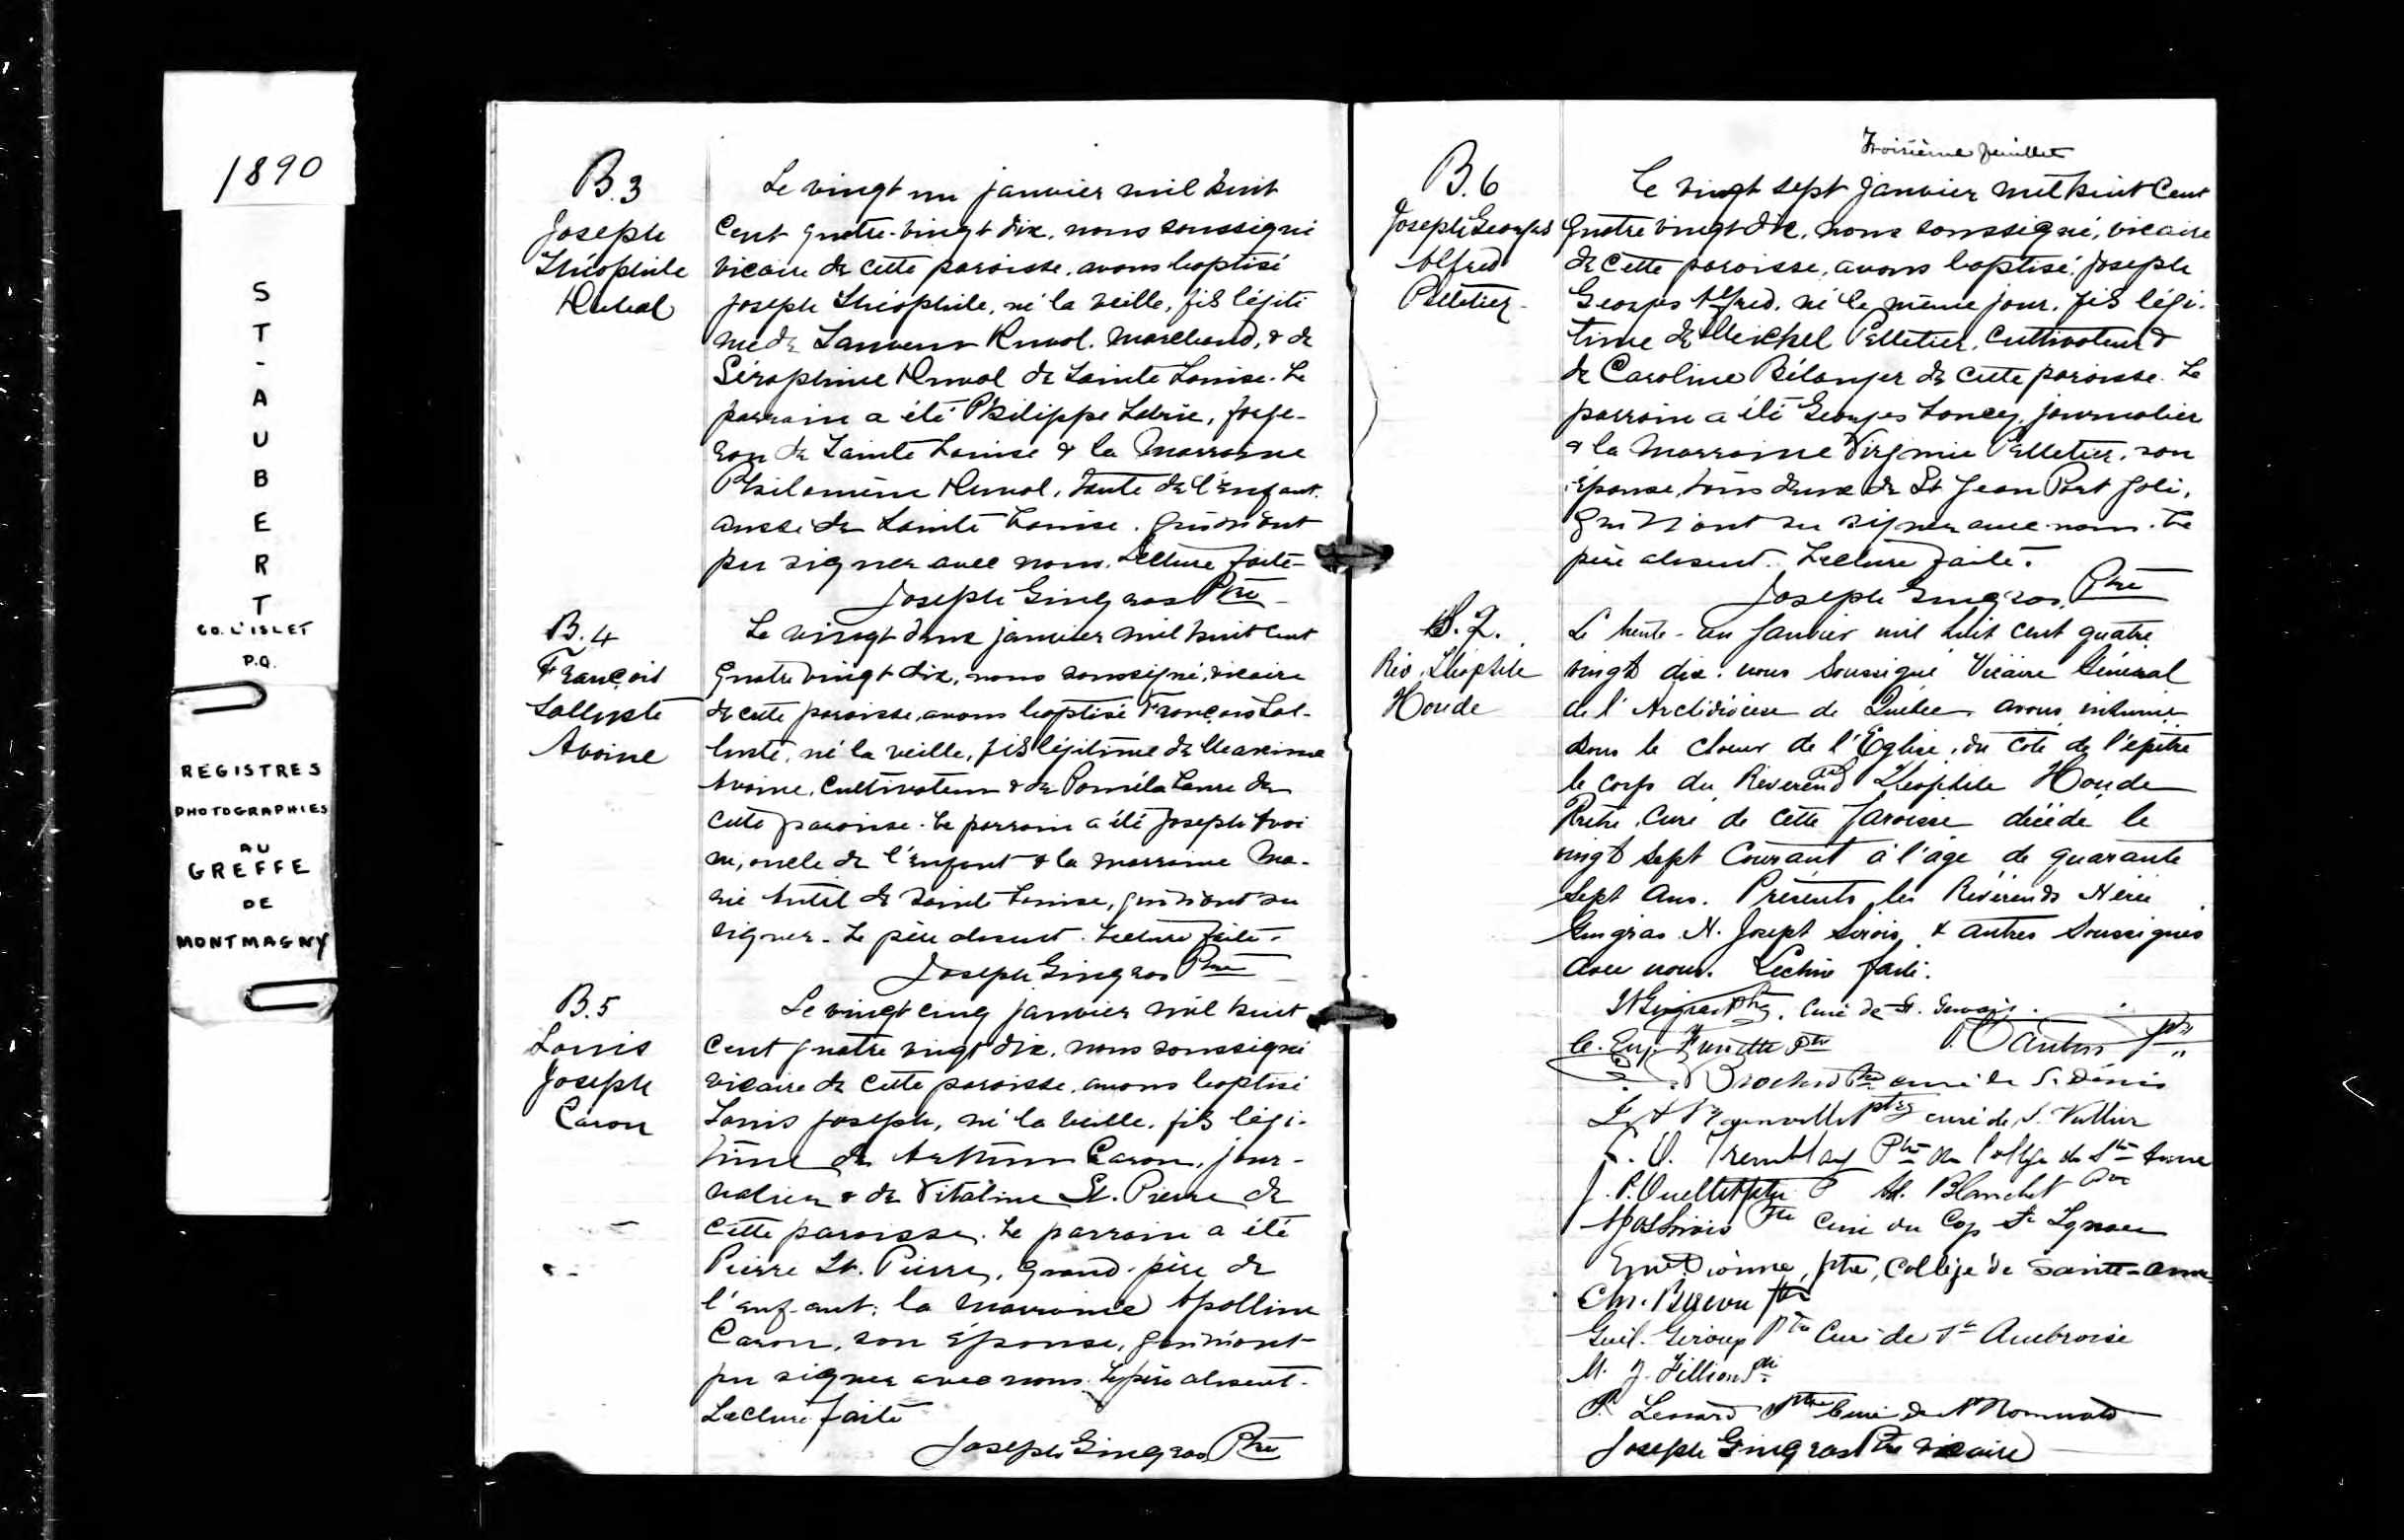 1890
ST-AUBERT
CO. L'ISLET
P.Q.
REGISTRES
PHOTOGRAPHIES
AU
GREFFE
DE
MONTMAGNY
B.3
Joseph
Théophile
Le vingt un janvier mil huit
cent quatre-vingt dix, nous soussigné
vicaire de cette paroisse, avons baptisé
Joseph Théophile, né la veille, fils légiti
me de marchand, & de
Séraphine de Sainte Louise. Le
parrain a été Philippe Labrie, forge-
ron de Sainte Louise & la marraine
Philomène tante de l'enfant
aussi de Sainte Louise. qui n'ont
pu signer avec nous. Lecture faite-
Joseph Gingras Ptre
B.4
François
Salluste
Avoine
Le vingt deux janvier mil huit cent
quatre vingt dix, nous soussigné, vicaire
de cette paroisse, avons baptisé François Sal-
luste, né la veille, fils légitime de Maxime
Avoine, cultivateur & de Paméla de
cette paroisse. Le parrain a été Joseph Avoi
ne, oncle de l'enfant & la marraine Ma-
rie de Sainte Louise, qui n'ont su
signer. Le père absent. Lecture faite.
Joseph Gingras Ptre
B.5
Louis
Joseph
Caron
Le vingt cinq janvier mil huit
cent quatre vingt dix, nous soussigné
vicaire de cette paroisse, avons baptisé
Louis Joseph, né la veille, fils légi-
time de Arthur Caron, jour-
nalier & de Vitaline St. Pierre de
cette paroisse. Le parrain a été
Pierre St. Pierre, grand-père de
l'enfant; la marraine Apolline
Caron, son épouse, qui n'ont
pu signer avec nous. Le père absent.
Lecture faite
Joseph Gingras Ptre
Troisième feuillet
B.6
Joseph Georges
Alfred
Pelletier
Le vingt sept janvier mil huit cent
quatre vingt dix, nous soussigné, vicaire
de cette paroisse, avons baptisé Joseph
Georges Alfred, né le même jour, fils légi-
time de Michel Pelletier, cultivateur &
de Caroline Bélanger de cette paroisse. Le
parrain a été Georges journalier
& la marraine Virginie Pelletier, son
épouse, tous deux de St Jean Port Joli,
qui n'ont su signer avec nous. Le
père absent. Lecture faite.
Joseph Gingras, Ptre
Rév. Théophile
Houde
Le trente-un Janvier mil huit cent quatre
vingt dix, nous soussigné Vicaire Général
de l'Archidiocèse de Québec avons inhumé
dans le chœur de l'Eglise, du coté de l'épitre
le corps du Révérend Théophile Houde
Prêtre, Curé de cette Paroisse décédé le
vingt sept courant à l'âge de quarante
sept ans. Présents les Révérends Nérée
Gingras N. Joseph Sirois, & autres soussignés
avec nous. Lecture faite.
N Gingras Ptre. Curé de St. Gervais.
ptre
curé de St Denis
ptre curé de St. Vallier
Tremblay Ptre du Collège de Ste Anne
J. P. Ouellet ptre Ad. Blanchet
Sirois Ptre Curé du Cap St Ignace
Dionne, ptre, Collège de Sainte-Anne
Ch. Bacon Ptre
Guil. Giroux Ptre Curé de St Ambroise
J. Fillion Ptre
P. Lessard Ptre Curé de St Romuald
Joseph Gingras Ptre vicaire